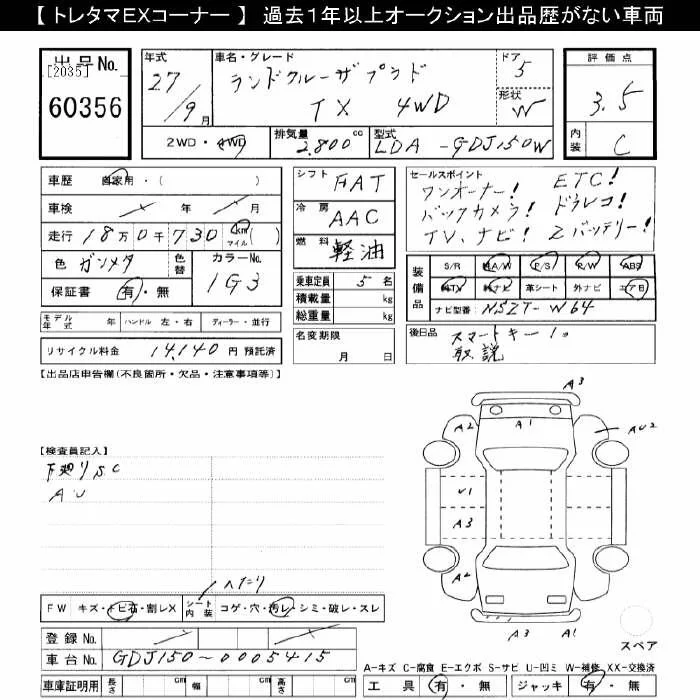 【 トレタマEXコーナー 】 過去１年以上オークション出品歴がない車両
出品No.
[2035]
60356
年式
27/9月
車名・グレード
ランドクルーザプラド
TX 4WD
ドア
5
形状
W
評価点
3.5
内装
C
2WD・4WD
排気量
2,800cc
型式
LDA-GDJ150W
車歴 自家用・( )
車検 年 月
走行 18万0千730 km マイル( )
色 ガンメタ
色替
カラーNo.
1G3
保証書 有・無
モデル年式 年 ハンドル 左・右 ディーラー・並行
リサイクル料金 14,140円 預託済
シフト FAT
冷房 AAC
燃料 軽油
乗車定員 5名
積載量 kg
総重量 kg
名変期限
月 日
セールスポイント
ワンオーナー! ETC!
バックカメラ! ドラレコ!
TV、ナビ! 2バッテリー!
装備品
S/R A/W P/S P/W ABS
純TV 純ナビ 革シート 外ナビ エアB
ナビ型番: NSZT-W64
後日品
スマートキー1コ
取説
【出品店申告欄(不良箇所・欠品・注意事項等)】
【検査員記入】
下廻りSC
AU
A3
A2
A1
AU2
U1
A3
A2
A3
A1
スペア
ヘたり
FW キズ・トビ石・割レX
シート内装
コゲ・穴・汚レ・シミ・破レ・スレ
登録No.
車台No. GDJ150-0005415
車庫証明用 長さ 幅 高さ
A-キズ C-腐食 E-エクボ S-サビ U-凹ミ W-補修 XX-交換済
工具 有・無 ジャッキ 有・無